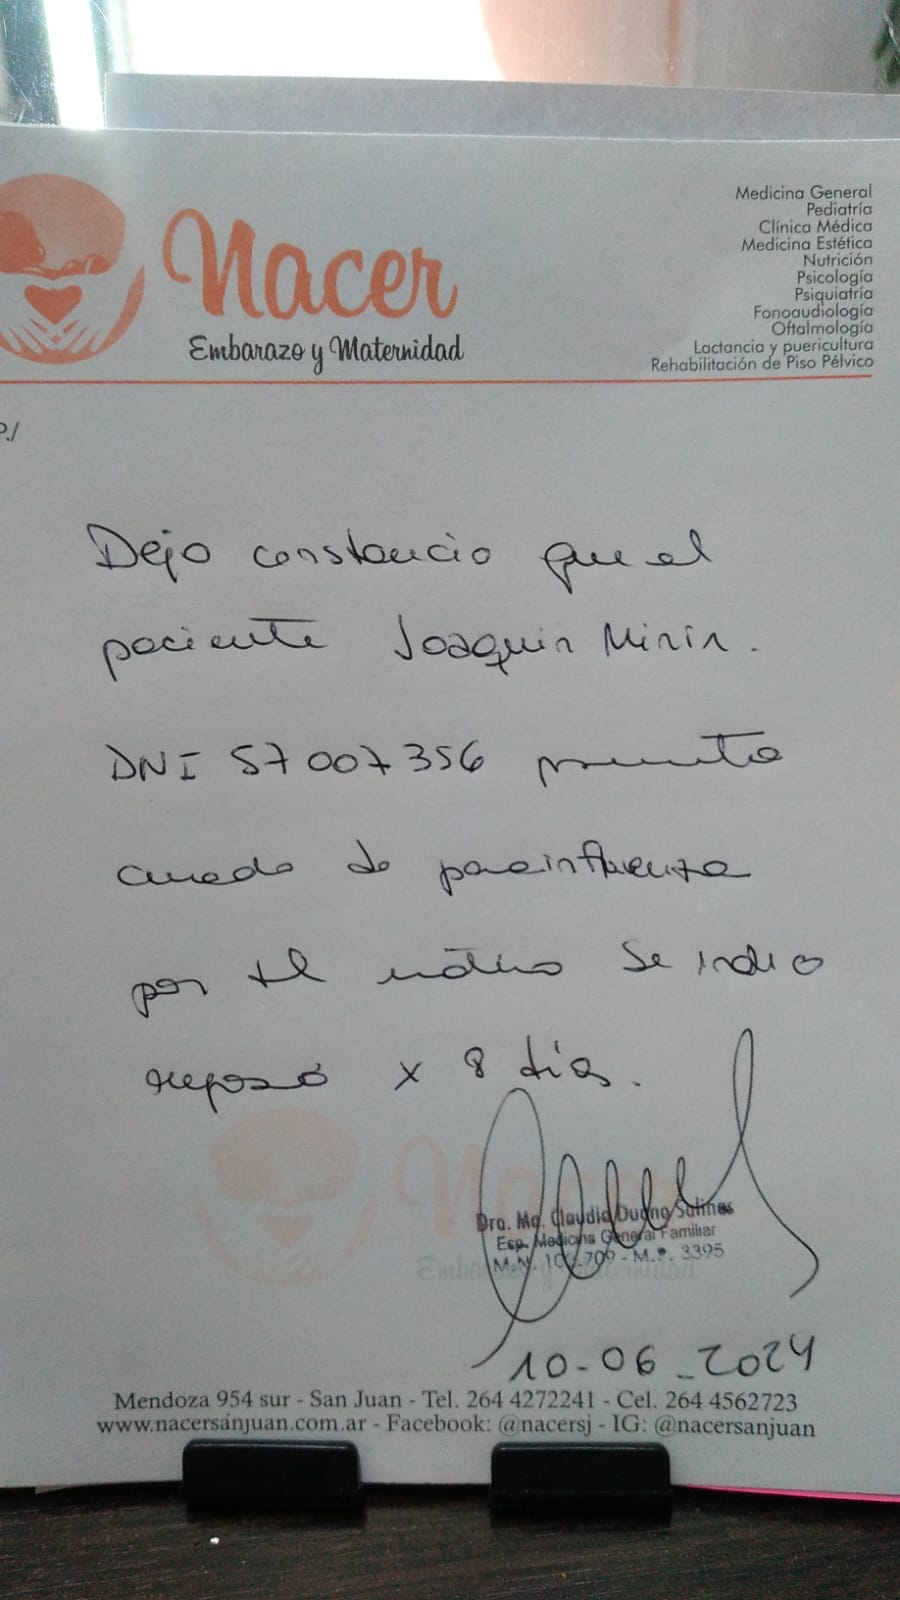 Nacer
Embarazo y Maternidad
Medicina General
Pediatría
Clínica Médica
Medicina Estética
Nutrición
Psicología
Psiquiatría
Fonoaudiología
Oftalmología
Lactancia y puericultura
Rehabilitación de Piso Pélvico
P./
Dejo constancia que el
paciente Joaquin
DNI 57007356 presenta
cuadro de parainfluenza
por tal motivo se indica
reposo x 8 días.
Dra. Ma. Claudia Salinas
Esp. Medicina General Familiar
M.P. 3395
10-06-2024
Mendoza 954 sur - San Juan - Tel. 264 4272241 - Cel. 264 4562723
www.nacersanjuan.com.ar - Facebook: @nacersj - IG: @nacersanjuan